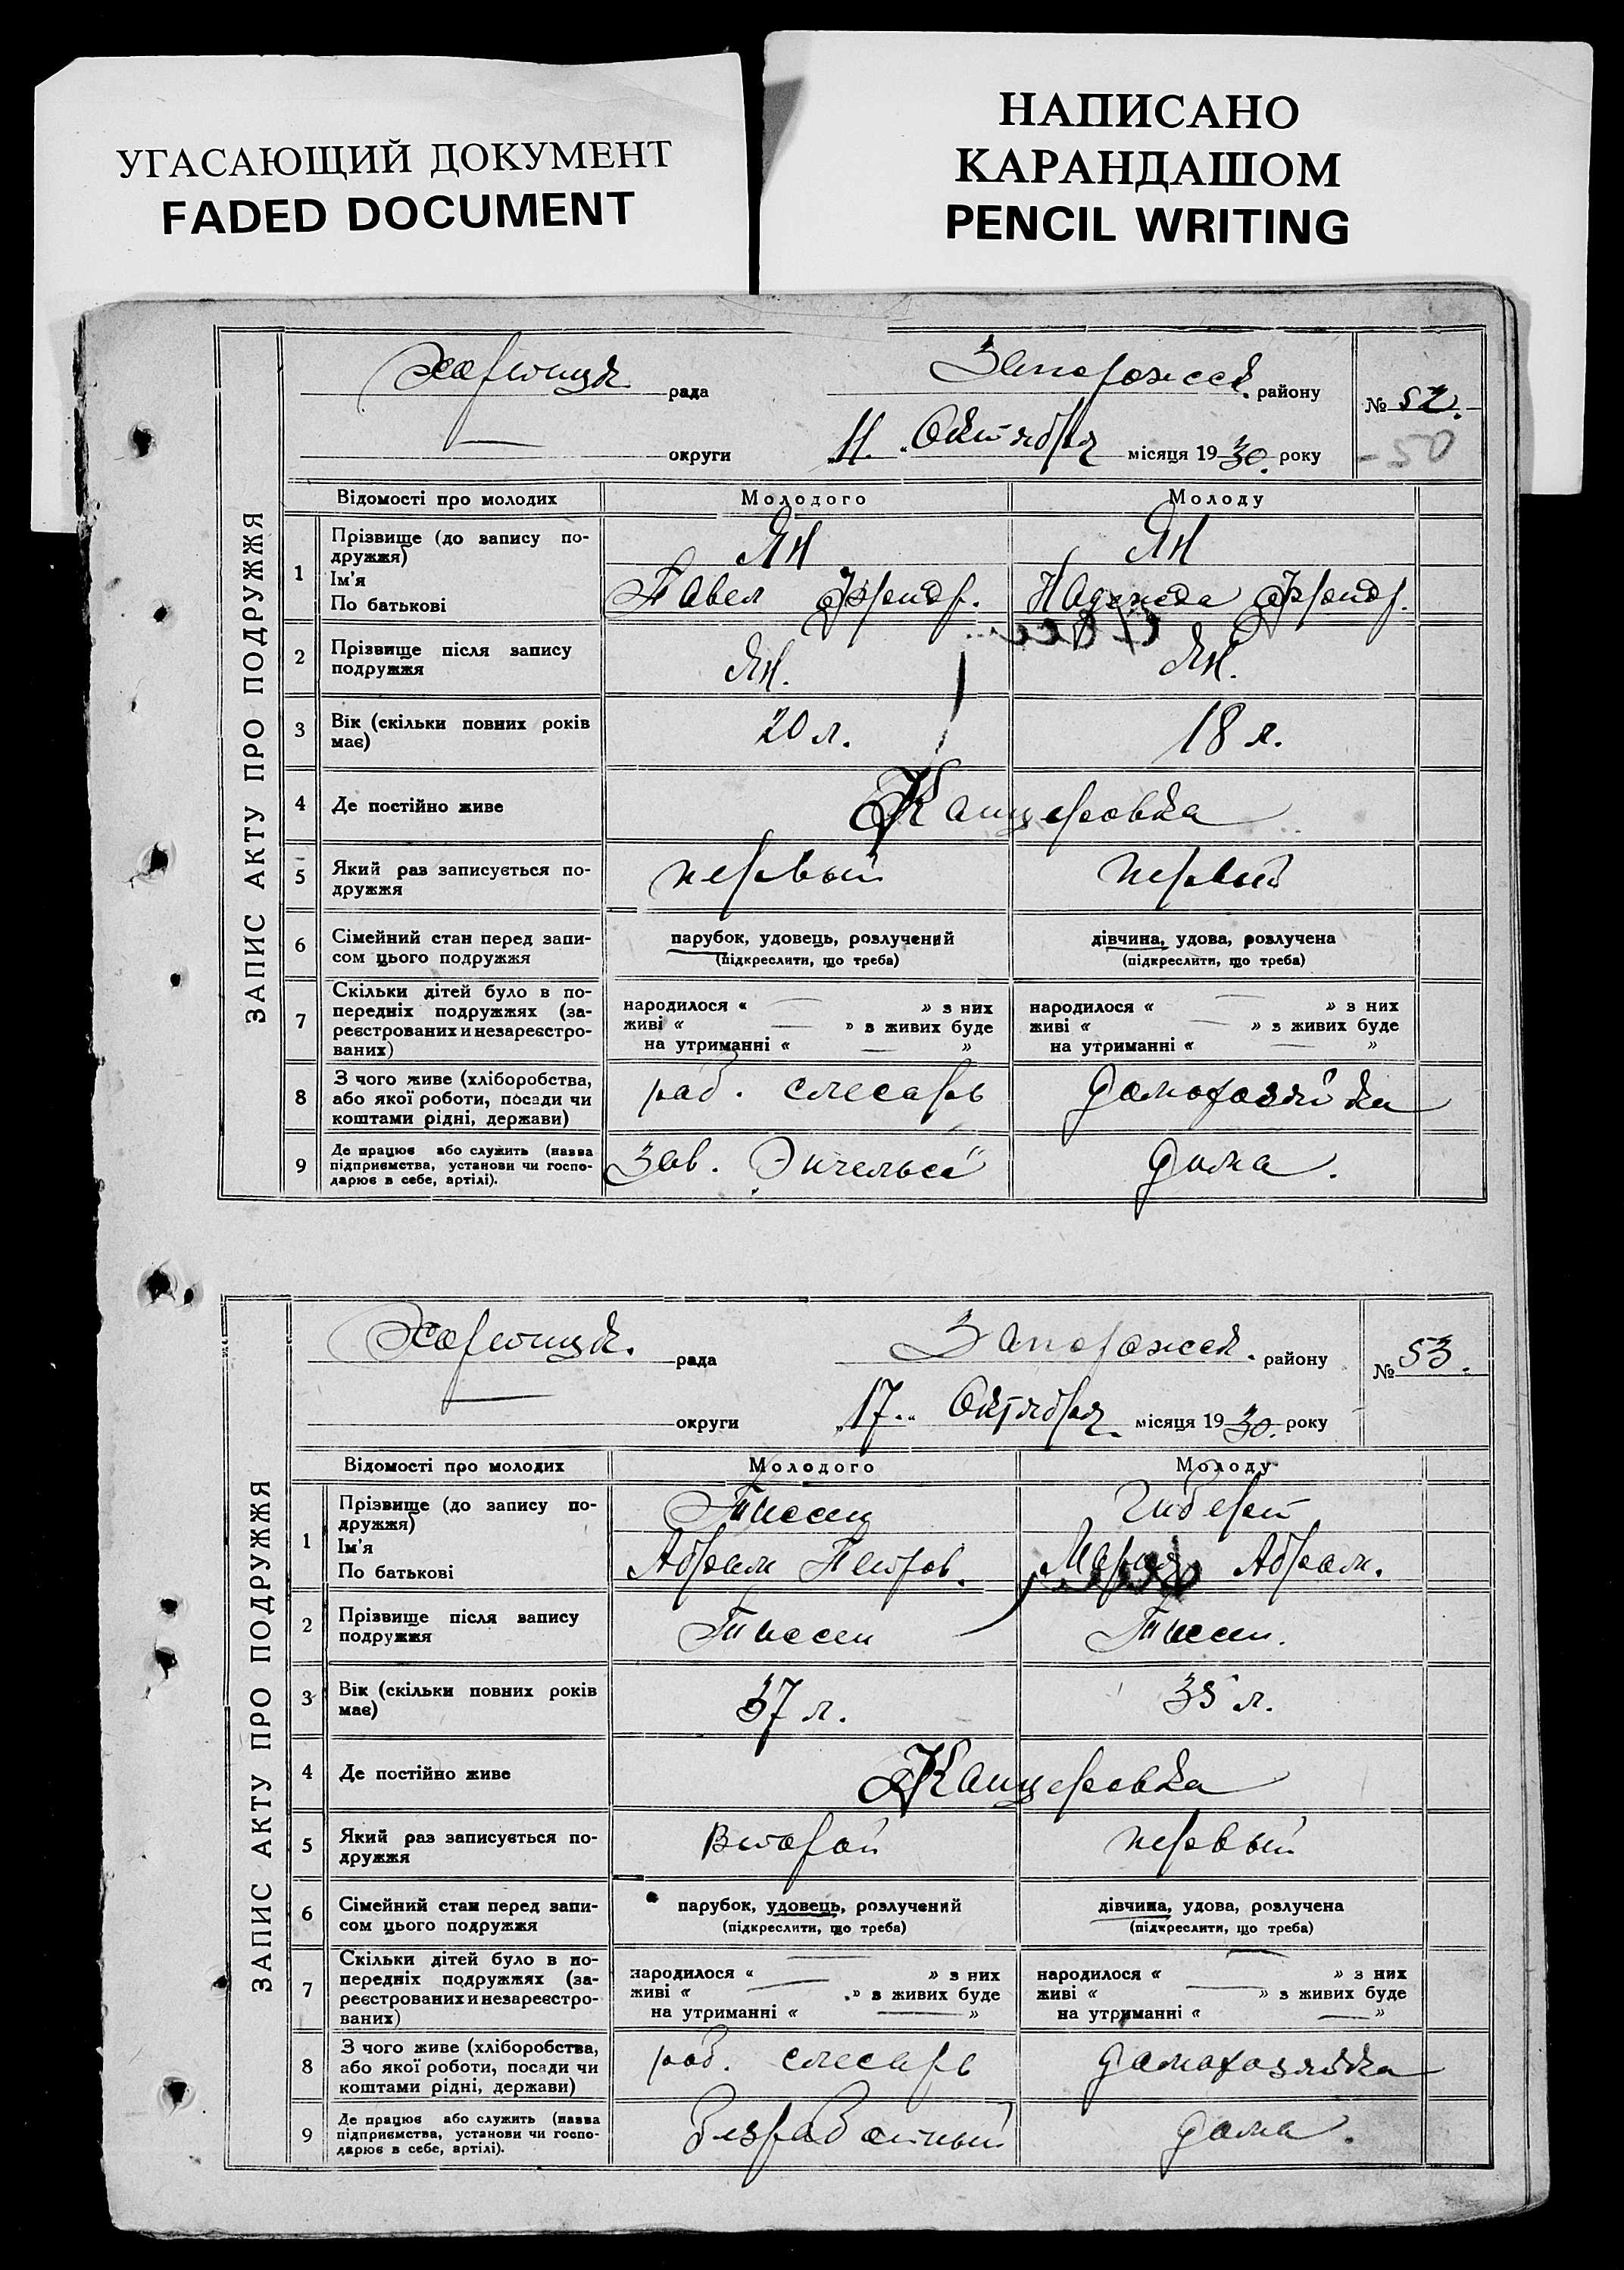 УГАСАЮЩИЙ ДОКУМЕНТ
FADED DOCUMENT
НАПИСАНО
КАРАНДАШОМ
PENCIL WRITING
ЗАПИС АКТУ ПРО ПОДРУЖЖЯ
Хортицк. рада Запорожск. району № 52.
— округи „11.“ Октября місяця 1930. року -50
Відомості про молодих Молодого Молоду
1 Прізвище (до запису по-
дружжя) Ян Ян
Ім'я
По батькові Павел Надежда
2 Прізвище після запису
подружжя Ян. Ян.
3 Вік (скільки повних років
має) 20 л. 18 л.
4 Де постійно живе Канцеровка
5 Який раз записується по-
дружжя первый первый
6 Сімейний стан перед запи-
сом цього подружжя
парубок, удовець, розлучений
(підкреслити, що треба)
дівчина, удова, розлучена
(підкреслити, що треба)
7 Скільки дітей було в по-
передніх подружжях (за-
реєстрованих и незареєстро-
ваних)
народилося « — » з них
живі « — » з живих буде
на утриманні « — »
народилося « — » з них
живі « — » з живих буде
на утриманні « — »
8 З чого живе (хліборобства,
або якої роботи, посади чи
коштами рідні, держави)
раб. слесарь домохозяйка
9 Де працює або служить (назва
підприємства, установи чи госпо-
дарює в себе, артілі).
зав. „Энгельса“ дома.
ЗАПИС АКТУ ПРО ПОДРУЖЖЯ
Хортицк. рада Запорожск. району № 53.
— округи „17.“ Октября місяця 1930. року
Відомості про молодих Молодого Молоду
1 Прізвище (до запису по-
дружжя) Тиссен Гиберт
Ім'я
По батькові Абрам Петров. Мария Абрам.
2 Прізвище після запису
подружжя Тиссен Тиссен.
3 Вік (скільки повних років
має) 37 л. 35 л.
4 Де постійно живе Канцеровка
5 Який раз записується по-
дружжя второй первый
6 Сімейний стан перед запи-
сом цього подружжя
парубок, удовець, розлучений
(підкреслити, що треба)
дівчина, удова, розлучена
(підкреслити, що треба)
7 Скільки дітей було в по-
передніх подружжях (за-
реєстрованих и незареєстро-
ваних)
народилося « — » з них
живі « — » з живих буде
на утриманні « — »
народилося « — » з них
живі « — » з живих буде
на утриманні « — »
8 З чого живе (хліборобства,
або якої роботи, посади чи
коштами рідні, держави)
раб. слесарь домохозяйка
9 Де працює або служить (назва
підприємства, установи чи госпо-
дарює в себе, артілі).
безработный дома.